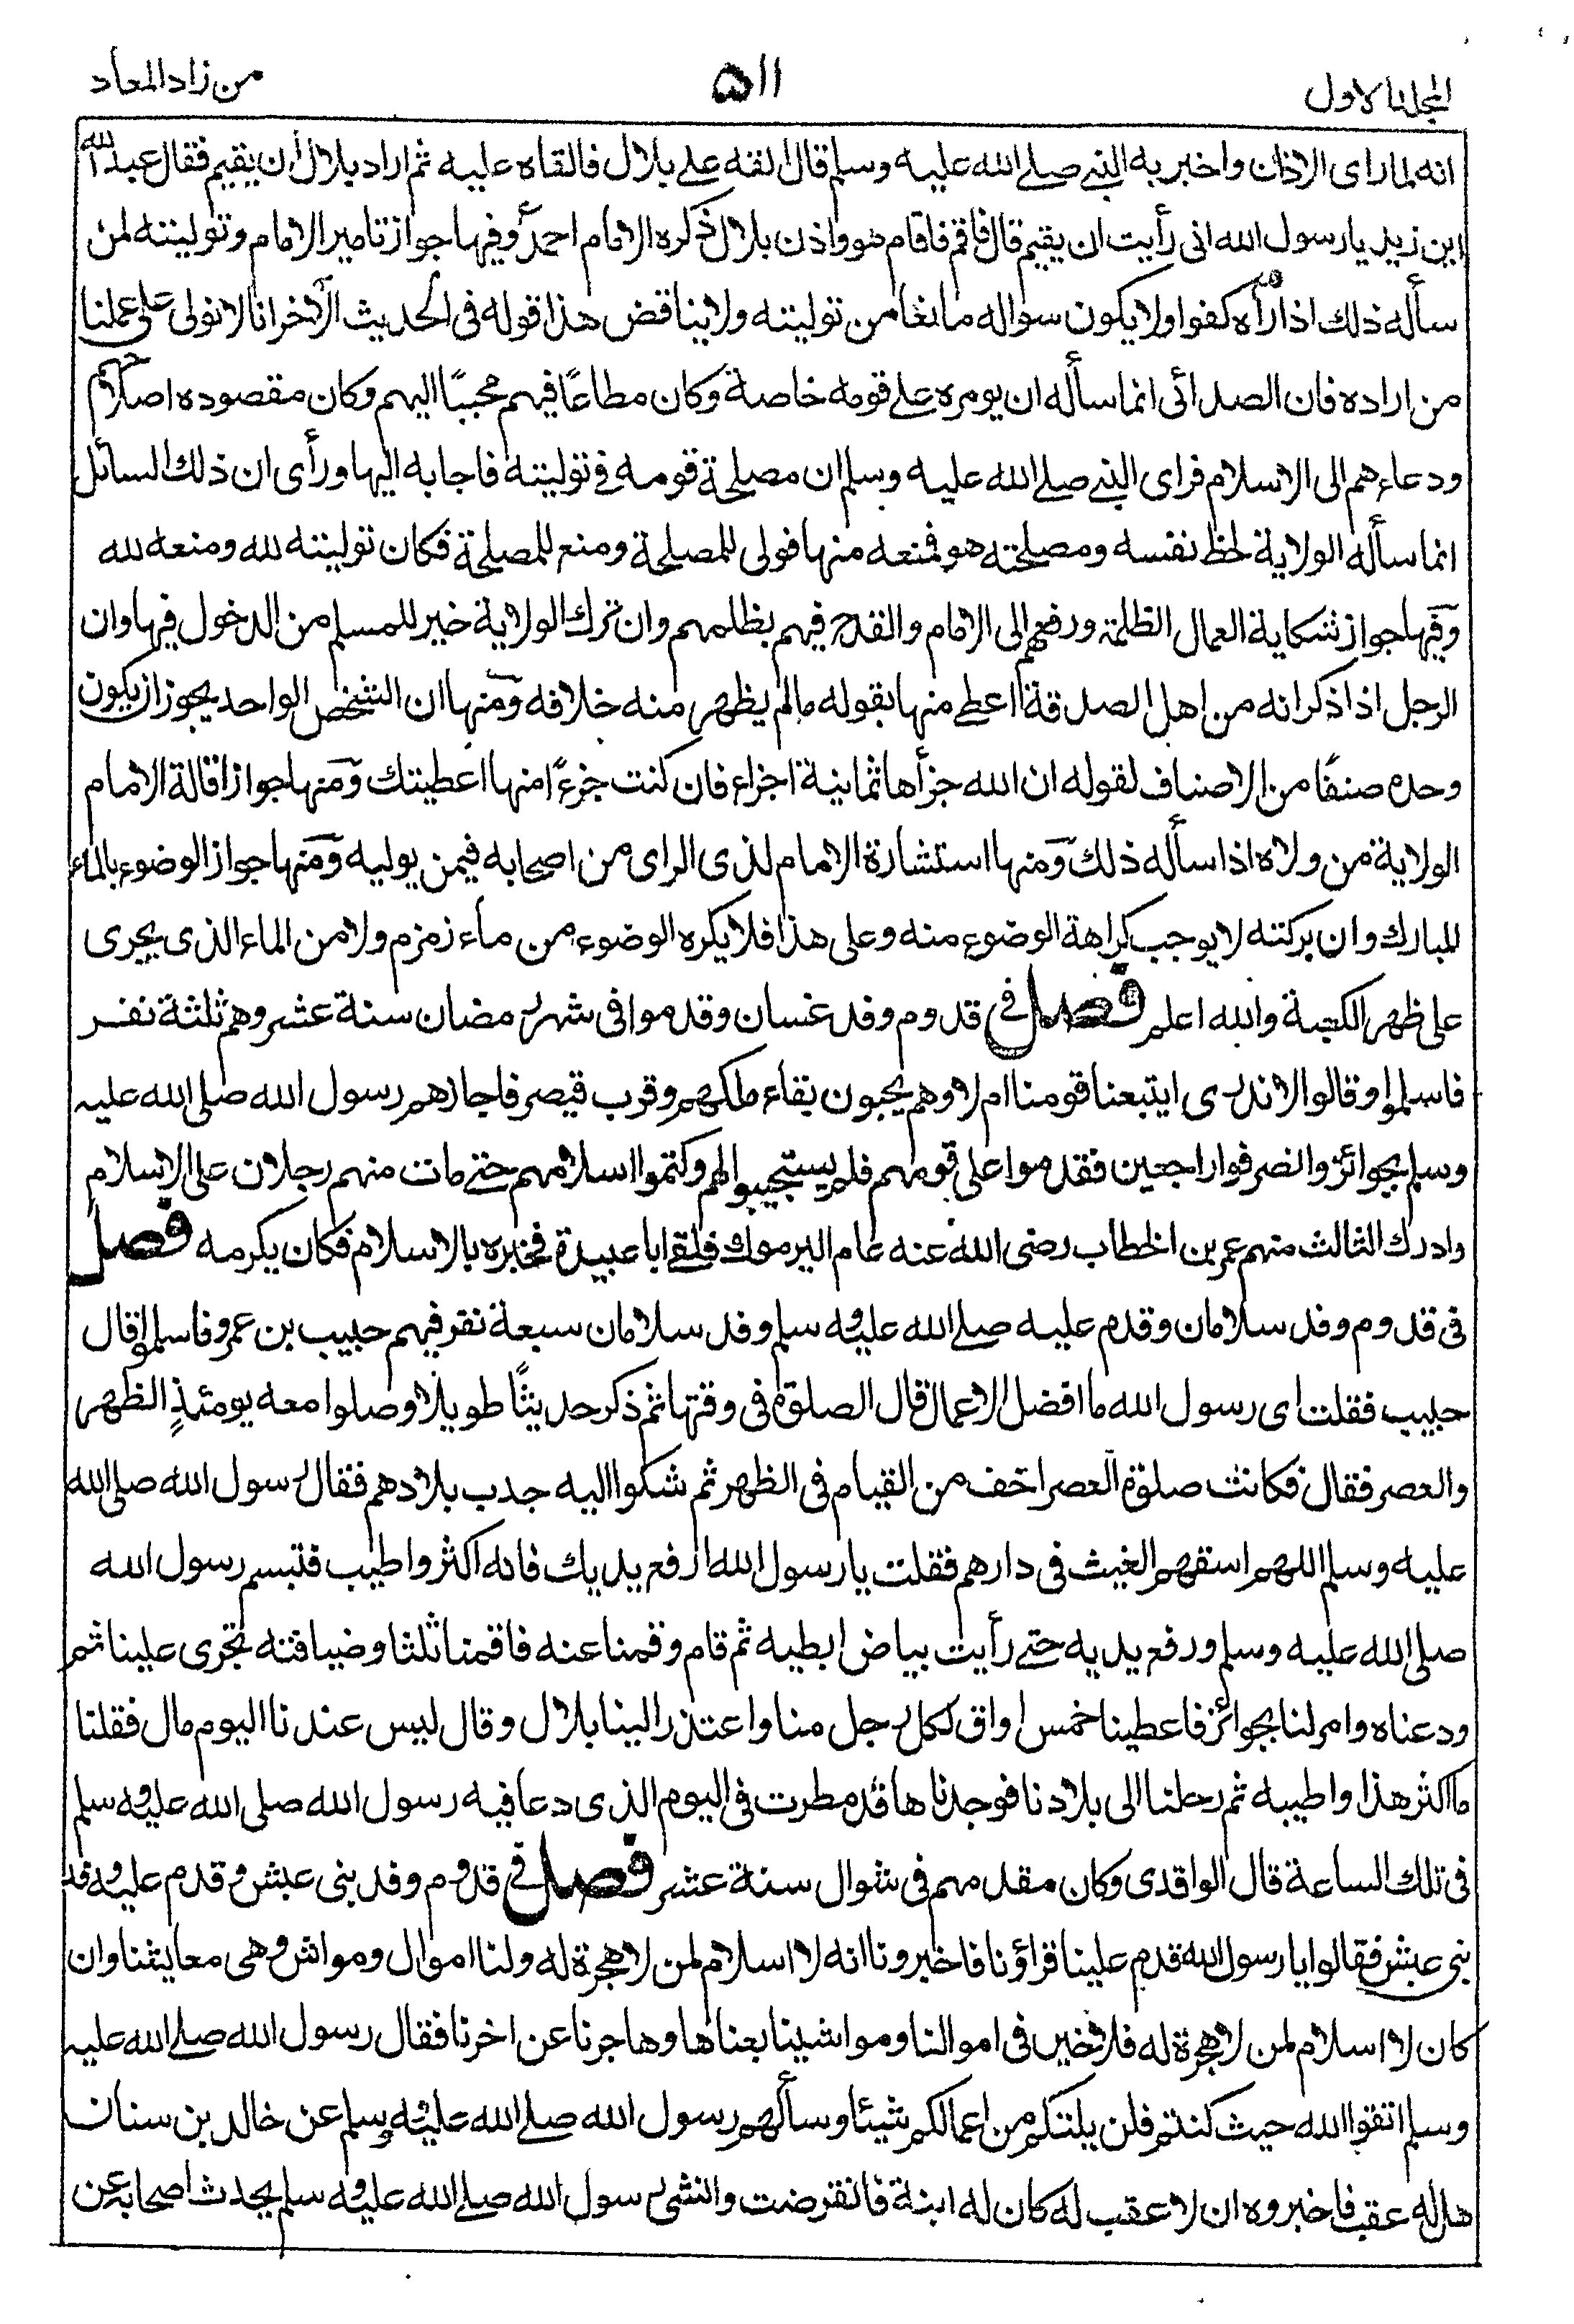 المجلد الاول
٥١١
من زاد المعاد
انه لما راى الاذان واخبر به النبي صلے الله عليه وسلم قال القه على بلال فالقاه عليه ثم اراد بلال أن يقيم فقال عبد الله
ابن زيد يا رسول الله انى رأيت ان يقيم قال فاقم فاقام هو واذن بلال ذكره الامام احمد وفيها جواز تامير الامام وتوليته لمن
سأله ذلك اذا رآه كفوا ولا يكون سواله مانعا من توليته ولا يناقض هذا قوله فى الحديث الآخر انا لا نولى على عملنا
من اراده فان الصدائى انما سأله ان يومره على قومه خاصة وكان مطاعًا فيهم محببًا اليهم وكان مقصوده اصلاحهم
ودعاءهم الى الاسلام فراى النبي صلے الله عليه وسلم ان مصلحة قومه فى توليته فاجابه اليها ورأى ان ذلك السائل
انما سأله الولاية لحظ نفسه ومصلحته هو فمنعه منها فولى للمصلحة ومنع للمصلحة فكان توليته لله ومنعه لله
وفيها جواز شكاية العمال الظلمة ورفعهم الى الامام والقدح فيهم بظلمهم وان ترك الولاية خير للمسلم من الدخول فيها وان
الرجل اذا ذكر انه من اهل الصدقة اعطى منها بقوله مالم يظهر منه خلافه ومنها ان الشخص الواحد يجوز ان يكون
وحده صنفًا من الاصناف لقوله ان الله جزأها ثمانية اجزاء فان كنت جزءًا منها اعطيتك ومنها جواز اقالة الامام
الولاية من ولاه اذا سأله ذلك ومنها استشارة الامام لذى الراى من اصحابه فيمن يوليه ومنها جواز الوضوء بالماء
المبارك وان بركته لا يوجب كراهة الوضوء منه وعلى هذا فلا يكره الوضوء من ماء زمزم ولا من الماء الذى يجرى
على ظهر الكعبة والله اعلم فصل فى قدوم وفد غسان وقدموا فى شهر رمضان سنة عشر وهم ثلثة نفر
فاسلموا وقالوا لا ندرى ايتبعنا قومنا ام لا وهم يحبون بقاء ملكهم وقرب قيصر فاجازهم رسول الله صلى الله عليه
وسلم بجوائز وانصرفوا راجعين فقدموا على قومهم فلم يستجيبوا لهم وكتموا اسلامهم حتى مات منهم رجلان على الاسلام
وادرك الثالث منهم عمر بن الخطاب رضى الله عنه عام اليرموك فلقے ابا عبيدة فخبره بالاسلام فكان يكرمه فصل
فى قدوم وفد سلامان وقدم عليه صلے الله عليه وسلم وفد سلامان سبعة نفر فيهم حبيب بن عمرو فاسلموا قال
حبيب فقلت اى رسول الله ما افضل الاعمال قال الصلوة فى وقتها ثم ذكر حديثًا طويلا وصلوا معه يومئذٍ الظهر
والعصر فقال فكانت صلوة العصر اخف من القيام فى الظهر ثم شكوا اليه جدب بلادهم فقال رسول الله صلى الله
عليه وسلم اللهم اسقهم الغيث فى دارهم فقلت يا رسول الله ارفع يديك فانه اكثر واطيب فتبسم رسول الله
صلى الله عليه وسلم ورفع يديه حتے رأيت بياض ابطيه ثم قام وقمنا عنه فاقمنا ثلثا وضيافته تجرى علينا ثم
ودعناه وامر لنا بجوائز فاعطينا خمس اواق لكل رجل منا واعتذر الينا بلال وقال ليس عندنا اليوم مال فقلنا
ما اكثر هذا واطيبه ثم رحلنا الى بلادنا فوجدناها قد مطرت فى اليوم الذى دعا فيه رسول الله صلى الله عليه وسلم
فى تلك الساعة قال الواقدى وكان مقدمهم فى شوال سنة عشر فصل فى قدوم وفد بنى عبش وقدم عليه وفد
بنى عبش فقالوا يا رسول الله قدم علينا قراؤنا فاخبرونا انه لا اسلام لمن لا هجرة له ولنا اموال ومواش وهى معايشنا وان
كان لا اسلام لمن لا هجرة له فلا خير فى اموالنا ومواشينا بعناها وهاجرنا عن اخرنا فقال رسول الله صلے الله عليه
وسلم اتقوا الله حيث كنتم فلن يلتكم من اعمالكم شيئا وسألهم رسول الله صلے الله عليه وسلم عن خالد بن سنان
هل له عقب فاخبروه ان لا عقب له كان له ابنة فانقرضت وانشى رسول الله صلے الله عليه وسلم يحدث اصحابه عن